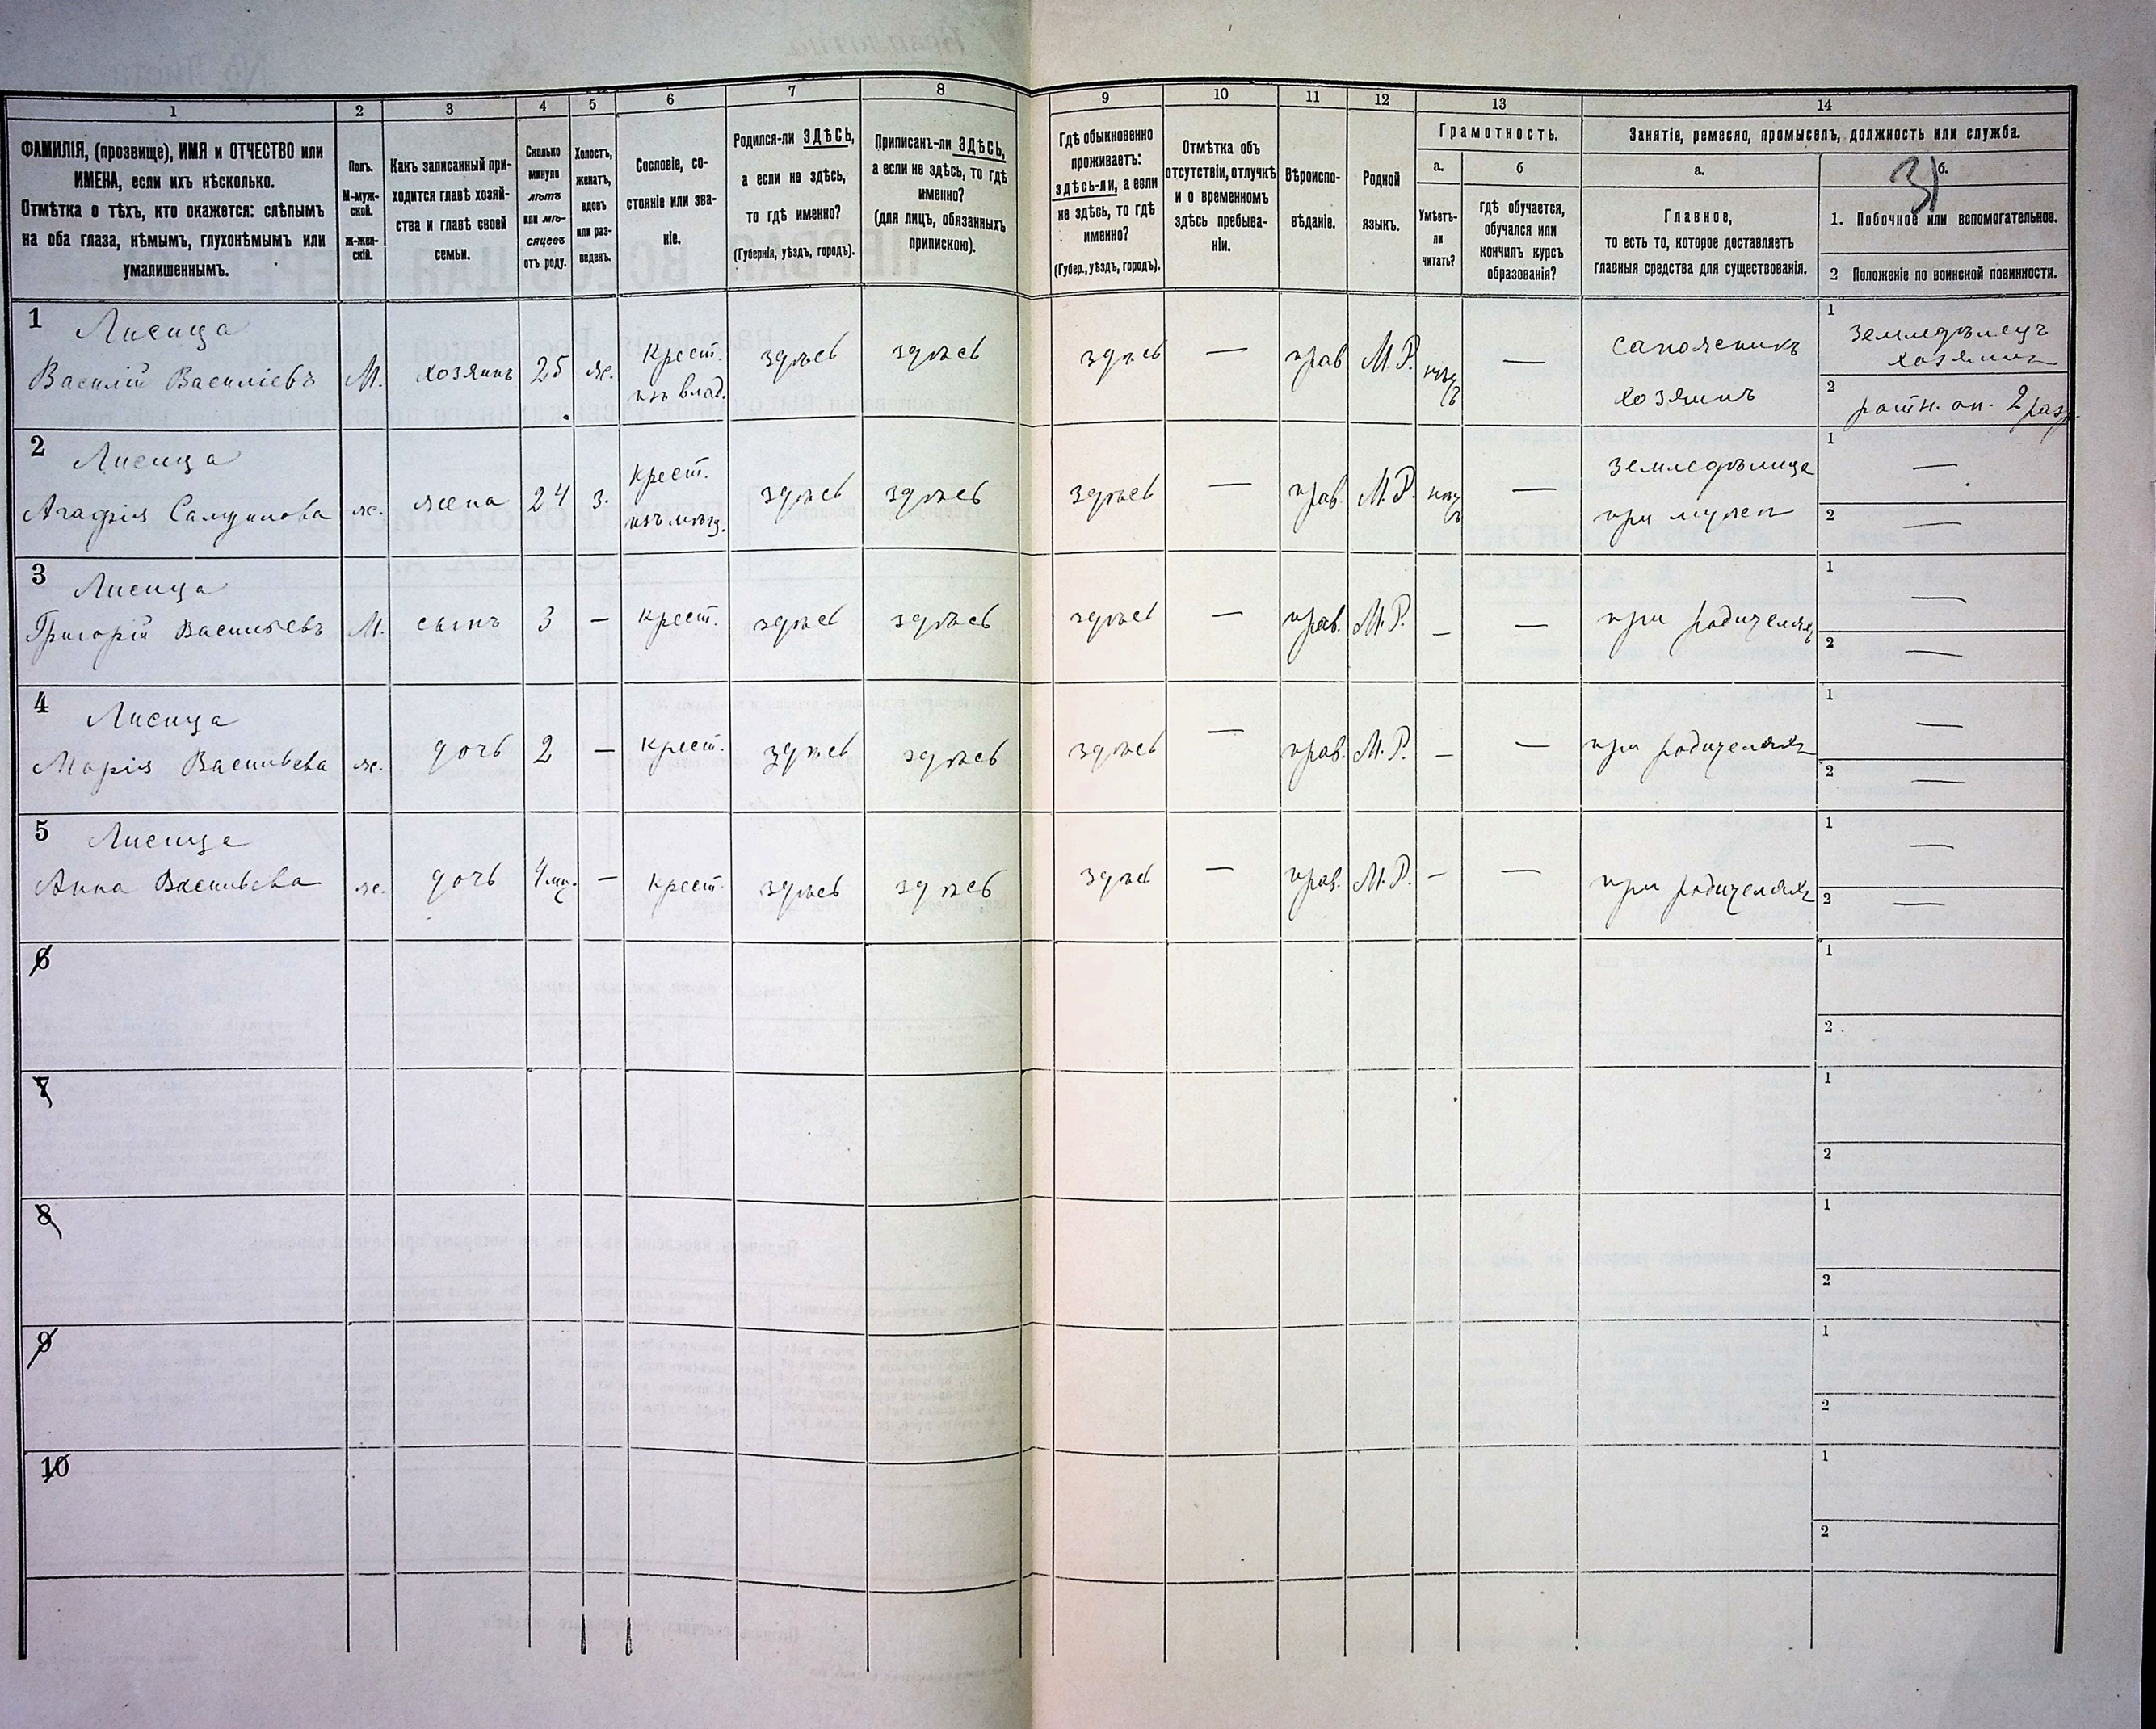 1 2 3 4 5 6 7 8 9 10 11 12 13 14
ФАМИЛІЯ, (прозвище), ИМЯ и ОТЧЕСТВО или
ИМЕНА, если ихъ нѣсколько.
Отмѣтка о тѣхъ, кто окажется: слѣпымъ
на оба глаза, нѣмымъ, глухонѣмымъ или
умалишеннымъ.
Полъ.
М-муж-
ской.
Ж-жен-
скій.
Какъ записанный при-
ходится главѣ хозяй-
ства и главѣ своей
семьи.
Сколько
минуло
лѣтъ
или мѣ-
сяцевъ
отъ роду.
Холостъ,
женатъ,
вдовъ
или раз-
веденъ.
Сословіе, со-
стояніе или зва-
ніе.
Родился-ли ЗДѢСЬ,
а если не здѣсь,
то гдѣ именно?
(Губернія, уѣздъ, городъ).
Приписанъ-ли ЗДѢСЬ,
а если не здѣсь, то гдѣ
именно?
(для лицъ, обязанныхъ
припискою).
Гдѣ обыкновенно
проживаетъ:
здѣсь-ли, а если
не здѣсь, то гдѣ
именно?
(Губер., уѣздъ, городъ).
Отмѣтка объ
отсутствіи, отлучкѣ
и о временномъ
здѣсь пребыва-
ніи.
Вѣроиспо-
вѣданіе.
Родной
языкъ.
Грамотность.
а.
Умѣетъ-
ли
читать?
б
гдѣ обучается,
обучался или
кончилъ курсъ
образованія?
Занятіе, ремесло, промыселъ, должность или служба.
а.
Главное,
то есть то, которое доставляетъ
главныя средства для существованія.
б.
1. Побочное или вспомогательное.
2 Положеніе по воинской повинности.
1 Лисица
Василій Василіевъ М. хозяинъ 25 ж. крест. изъ влад. здѣсь здѣсь здѣсь — прав М.Р. нѣтъ — сапожникъ хозяинъ
1 земледѣлецъ хозяинъ
2 ратн. оп. 2 разр.
2 Лисица
Агафія Самуилова ж. жена 24 з. крест. здѣсь здѣсь здѣсь — прав М.Р. нѣтъ — земледѣлица при мужѣ
1 —
2 —
3 Лисица
Григорій Васильевъ М. сынъ 3 — крест. здѣсь здѣсь здѣсь — прав. М.Р. — — при родителяхъ
1 —
2 —
4 Лисица
Марія Васильева ж. дочь 2 — крест. здѣсь здѣсь здѣсь — прав. М.Р. — — при родителяхъ
1 —
2 —
5 Лисица
Анна Васильева ж. дочь 4 мц. — крест. здѣсь здѣсь здѣсь — прав. М.Р. — — при родителяхъ
1 —
2 —
6
1
2
7
1
2
8
1
2
9
1
2
10
1
2